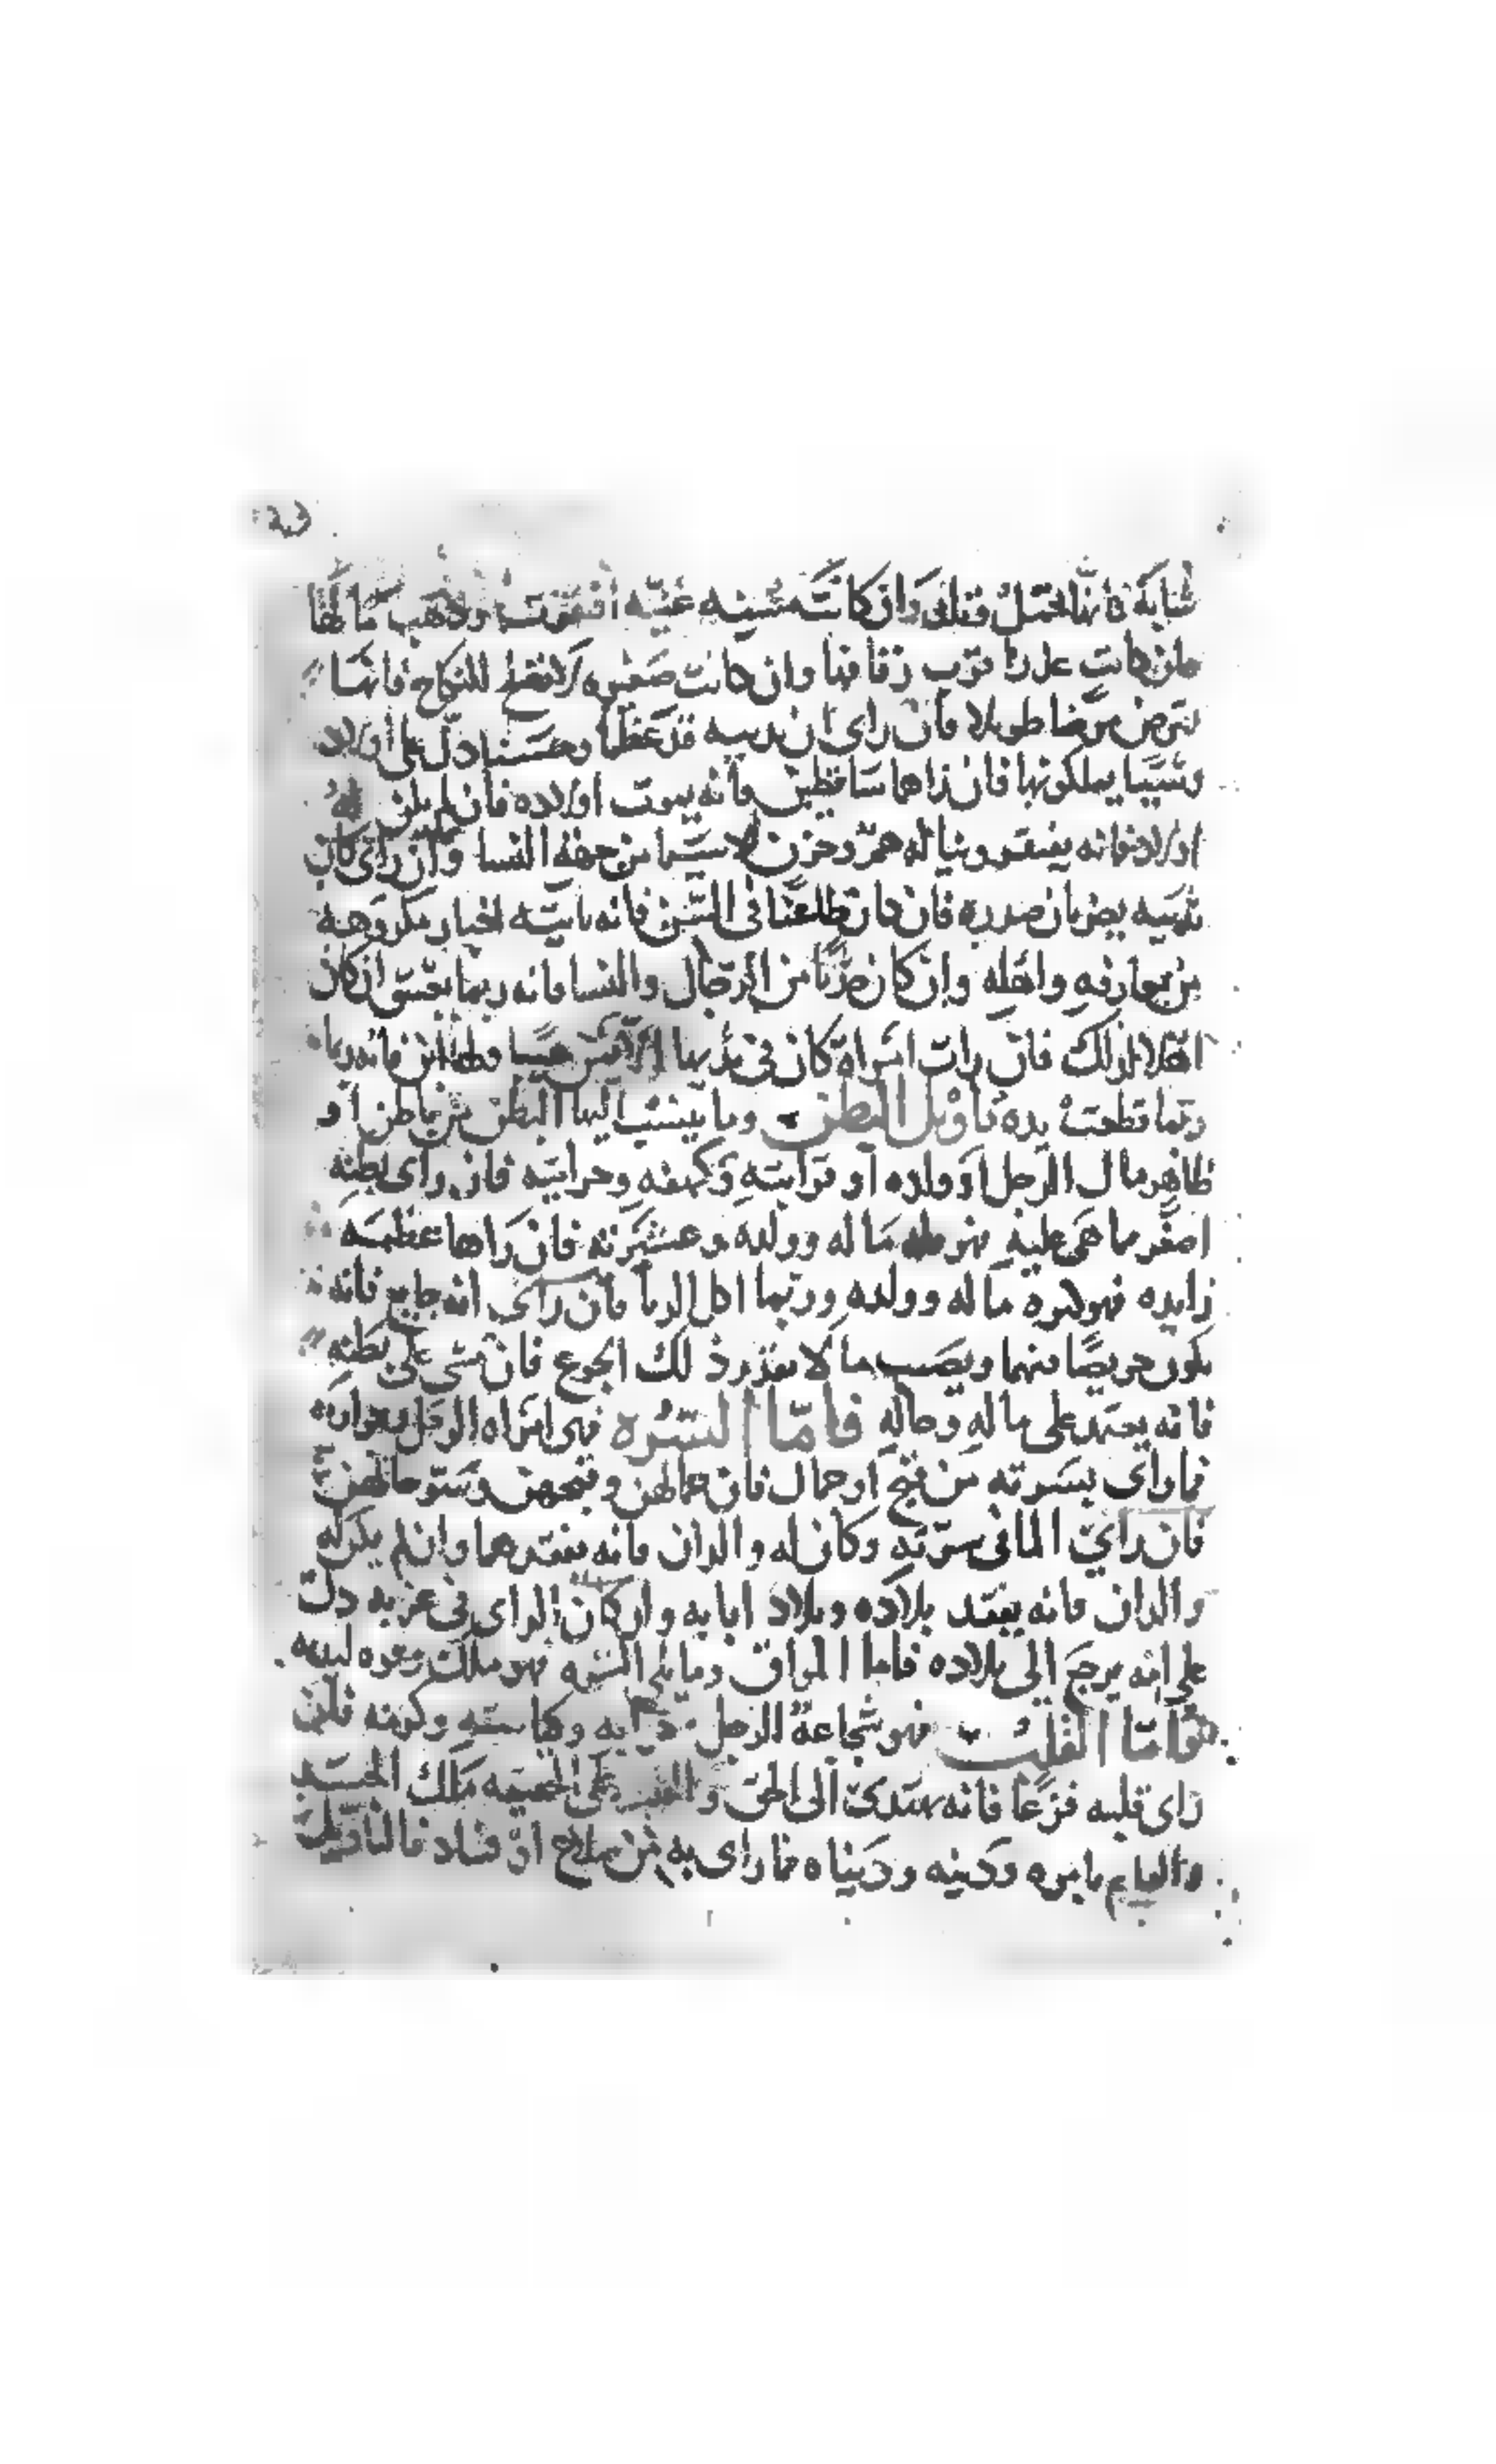 شابة فانها تحبل وتلد وان كانت مسنه غنيه افتقرت وذهب مالها
فان كانت عذرا قرب زفافها وان كانت صغيره لا تصلح للنكاح فانها
تمرض مرضا طويلا فان راى ان ثدييه قد عظما وحسنا دل على اولاد
وشيا يملكونها فان راهما ساقطين فانه يموت اولاده فان لم يكن له
اولاد فانه يفتقر ويناله هم وحزن لا سيما من جهة النسا وان راى كان
ثدييه يضربان صدره فان كان طاعنا فى السن فانه ياتيه اخبار مكروهه
من معارفه واهله وان كان من الرجال والنسا فانه ربما يعشق ان كان
اهلا لذلك فان رات امراة كان فى ثديها الايمن
ربما قطعت يده تاويل البطن وما ينسب اليها البطن من باطن او
ظاهر مال الرجل او ولده او قرابته وكهفه وخزانته فان راى بطنه
اصغر مما هى عليه فهو ماله وولده وعشيرته فان راها عظيمه
زايده فهو كثره ماله وولده وربما اكل الربا فان راى انه جايع فانه
يكون حريصا فهما ويصيب مالا بقدر ذلك الجوع فان مشى على بطنه
فانه يعتمد على ماله وحاله فاما السره فهى امراه الرجل
فما راى بسرته من قبح او جمال فان جمالهن وقبحهن وسو حالهن
فان راى الما فى سرته وكان له والدان فانه يفقدهما وان لم يكن له
والدان فانه يفقد بلاده وبلاد ابايه وان كان الراى فى غربه دلت
على انه يرجع الى بلاده فاما المراق وما يلى السره فهو ملك
فاما القلب فهو شجاعة الرجل وكرمه فان
راى قلبه فزعا فانه يهتدى الى الحق والقلب على الحقيقه ملك الجسد
والقايم بامره ودينه ودنياه فما راى به من صلاح او فساد فالتاويل